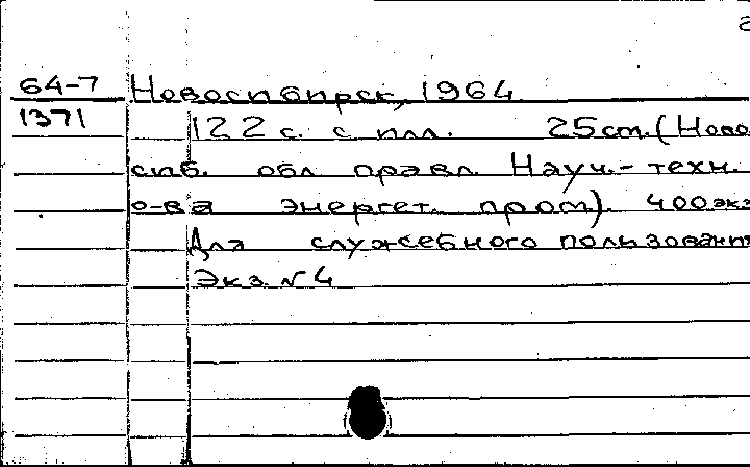 64-7 Новосибирск, 1964
1371 122 с. с илл. 25 см. (Ново
сиб. обл. правл. Науч.-техн.
о-ва энергет. пром). 400 экз
Для служебного пользования
Экз. № 4